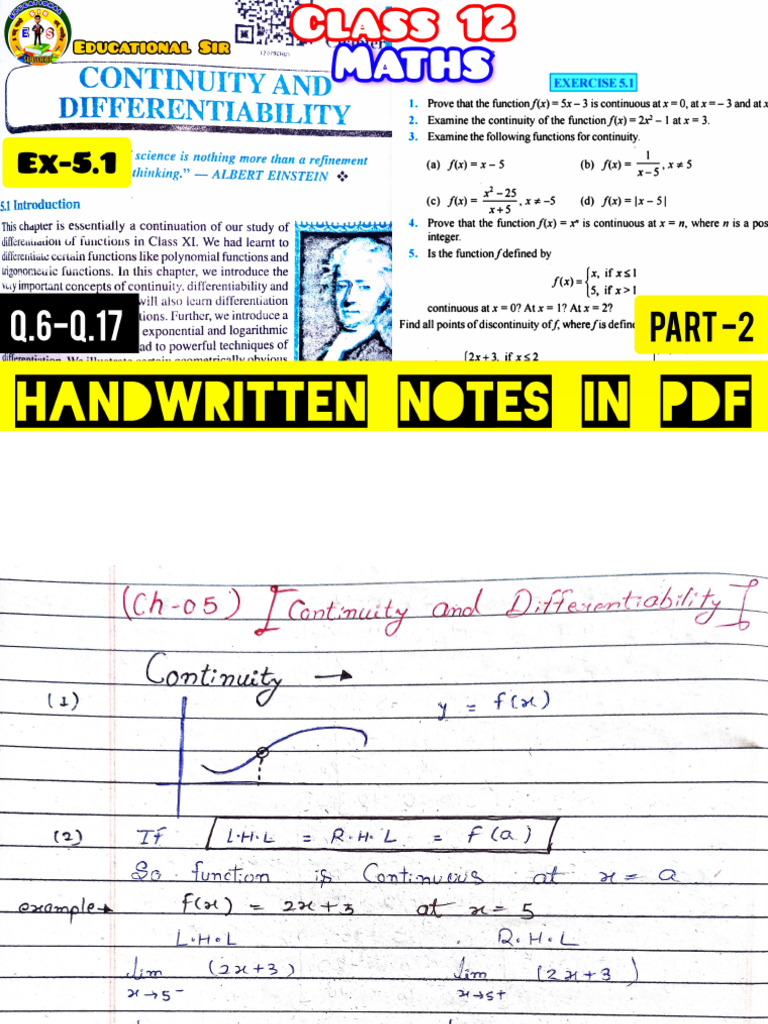 Educational Sir
CLASS 12
MATHS
CONTINUITY AND
DIFFERENTIABILITY
Ex-5.1
science is nothing more than a refinement
thinking.” — ALBERT EINSTEIN ❖
5.1 Introduction
This chapter is essentially a continuation of our study of
differentiation of functions in Class XI. We had learnt to
differentiate certain functions like polynomial functions and
trigonometric functions. In this chapter, we introduce the
very important concepts of continuity, differentiability and
will also learn differentiation
tions. Further, we introduce a
exponential and logarithmic
ad to powerful techniques of
differentiation. We illustrate certain geometrically obvious
Q.6-Q.17
EXERCISE 5.1
1. Prove that the function f(x) = 5x – 3 is continuous at x = 0, at x = – 3 and at x
2. Examine the continuity of the function f(x) = 2x² – 1 at x = 3.
3. Examine the following functions for continuity.
(a) f(x) = x – 5 (b) f(x) = 1/(x – 5), x ≠ 5
(c) f(x) = (x² – 25)/(x + 5), x ≠ –5 (d) f(x) = |x – 5|
4. Prove that the function f(x) = xⁿ is continuous at x = n, where n is a pos
integer.
5. Is the function f defined by
f(x) = {x, if x ≤ 1
5, if x > 1
continuous at x = 0? At x = 1? At x = 2?
Find all points of discontinuity of f, where f is define
{2x + 3, if x ≤ 2
PART-2
HANDWRITTEN NOTES IN PDF
(Ch-05) [Continuity and Differentiability]
Continuity →
(1) y = f(x)
(2) If L.H.L = R.H.L = f(a)
So function is Continuous at x = a
example→ f(x) = 2x+3 at x = 5
L.H.L R.H.L
lim (2x+3) lim (2x+3)
x→5⁻ x→5+